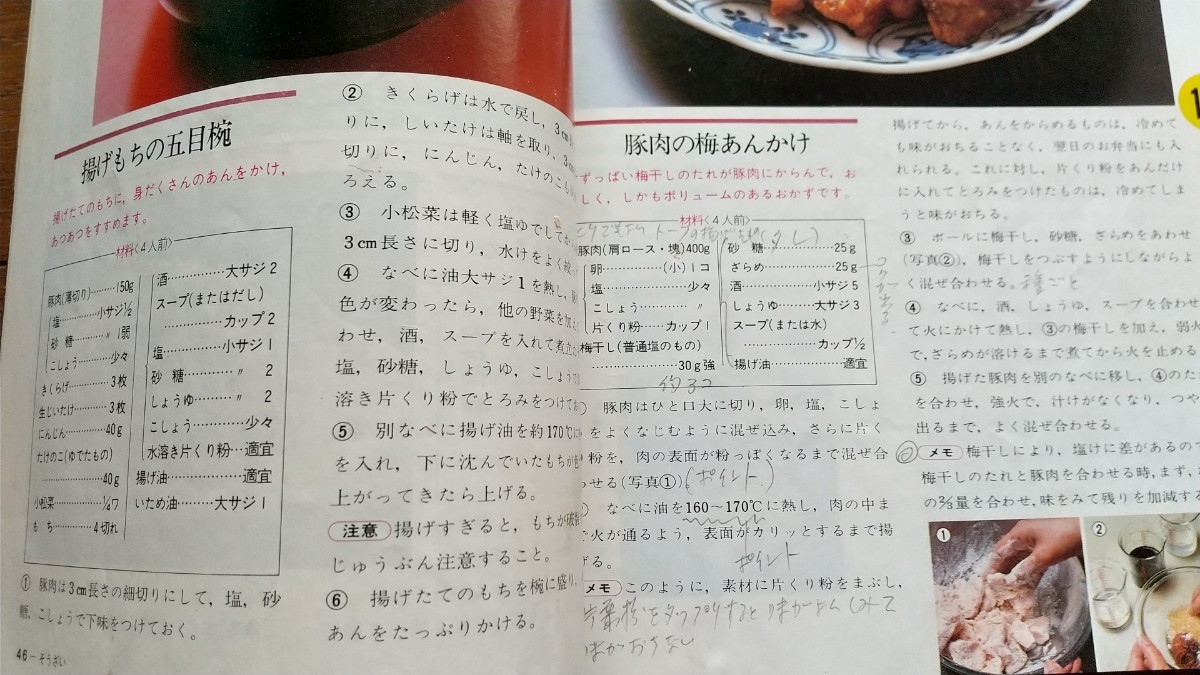 揚げもちの五目椀
揚げたてのもちに,身だくさんのあんをかけ,
あつあつをすすめます。
材料〈4人前〉
豚肉(薄切り)………150g
塩………小サジ½
砂糖………〃1弱
こしょう……少々
きくらげ…………3枚
生じいたけ………3枚
にんじん………40g
たけのこ(ゆでたもの)
………………40g
小松菜…………¼ワ
もち…………4切れ
酒…………大サジ2
スープ(またはだし)
…………カップ2
塩…………小サジ1
砂糖………〃2
しょうゆ………〃2
こしょう………少々
水溶き片くり粉…適宜
揚げ油…………適宜
いため油……大サジ1
① 豚肉は3cm長さの細切りにして,塩,砂
糖,こしょうで下味をつけておく。
46−そうざい
② きくらげは水で戻し,3cm
りに,しいたけは軸を取り,3cm
切りに,にんじん,たけのこも
ろえる。
③ 小松菜は軽く塩ゆでして
3cm長さに切り,水けをよく
④ なべに油大サジ1を熱し,
色が変わったら,他の野菜を加え
わせ,酒,スープを入れて煮立
塩,砂糖,しょうゆ,こしょう
溶き片くり粉でとろみをつけて
⑤ 別なべに揚げ油を約170℃に
を入れ,下に沈んでいたもちが
上がってきたら上げる。
注意 揚げすぎると,もちが
じゅうぶん注意すること。
⑥ 揚げたてのもちを椀に盛り,
あんをたっぷりかける。
豚肉の梅あんかけ
ずっぱい梅干しのたれが豚肉にからんで,お
しく,しかもボリュームのあるおかずです。
材料〈4人前〉
豚肉(肩ロース・塊)400g
卵……………(小)1コ
塩………………少々
こしょう………〃
片くり粉……カップ1
梅干し(普通塩のもの)
……………30g強
約3コ
砂糖……………25g
ざらめ…………25g
酒…………小サジ5
しょうゆ……大サジ3
スープ(または水)
…………カップ½
揚げ油…………適宜
豚肉はひと口大に切り,卵,塩,こしょ
をよくなじむように混ぜ込み,さらに片く
粉を,肉の表面が粉っぽくなるまで混ぜ合
わせる(写真①)(ポイント)
なべに油を160〜170℃に熱し,肉の中ま
で火が通るよう,表面がカリッとするまで揚
げる。
ポイント
メモ このように,素材に片くり粉をまぶし,
揚げてから,あんをからめるものは,冷めて
も味がおちることなく,翌日のお弁当にも入
れられる。これに対し,片くり粉をあんだけ
に入れてとろみをつけたものは,冷めてしま
うと味がおちる。
③ ボールに梅干し,砂糖,ざらめをあわせ
(写真②),梅干しをつぶすようにしながらよ
く混ぜ合わせる。種ごと
④ なべに,酒,しょうゆ,スープを合わせ
て火にかけて熱し,③の梅干しを加え,弱火
で,ざらめが溶けるまで煮てから火を止める
⑤ 揚げた豚肉を別のなべに移し,④のた
を合わせ,強火で,汁けがなくなり,つや
出るまで,よく混ぜ合わせる。
メモ 梅干しにより,塩けに差があるので
梅干しのたれと豚肉を合わせる時,まず,
の⅔量を合わせ,味をみて残りを加減する
①
②